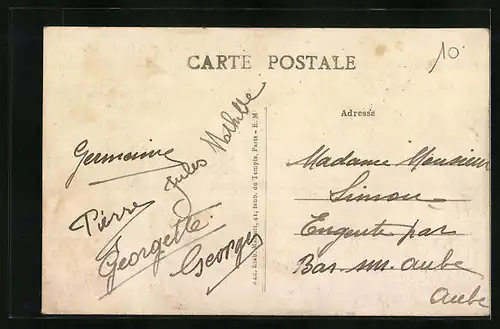 CARTE POSTALE
10
Adresse
Germaine
Jules Mathilde
Pierre
Georgette
Georges
Madame Monsieur
Simon
par
Bar sur aube
Aube
faub. du Temple, Paris - E. M.